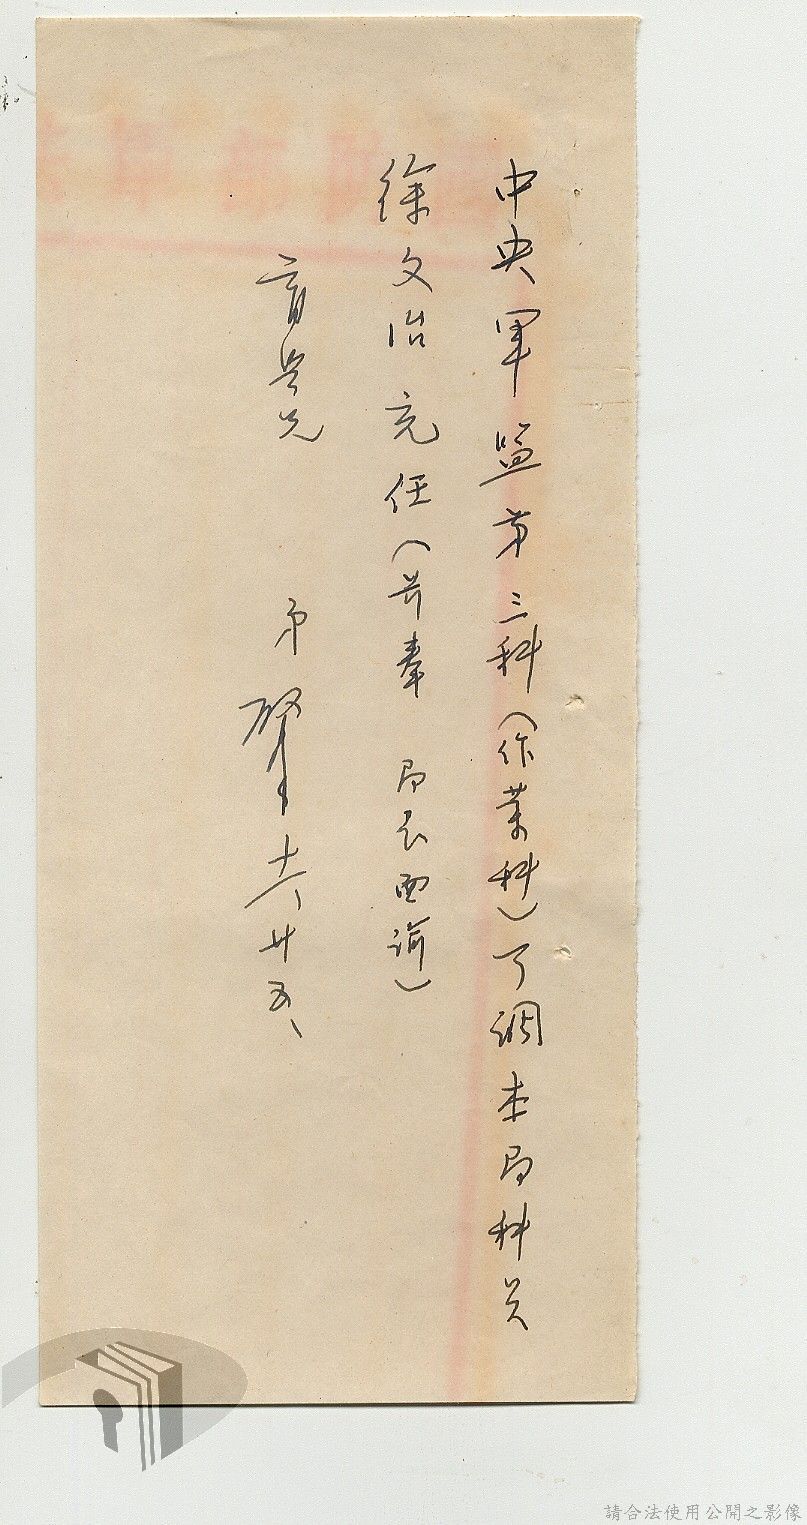 中央軍監第三科（作業科）可調本局科员
徐文治充任（并奉 局长面諭）
肯岩兄
弟 肇 十六、廿五、
請合法使用公開之影像